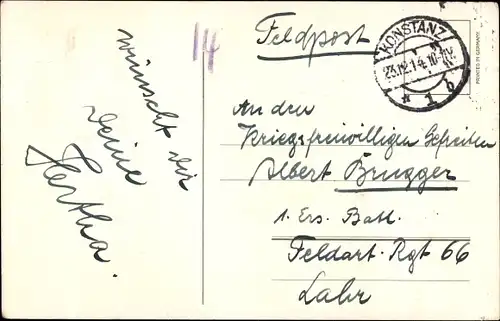 wünscht dir
Deine
Hertha.
14
Feldpost
KONSTANZ
23.12.14.10-11V.
* 1 b
PRINTED IN GERMANY
An den
Kriegsfreiwilligen Gefreiten
Albert Brugger
1. Ers. Batl.
Feldart. Rgt 66
Lahr